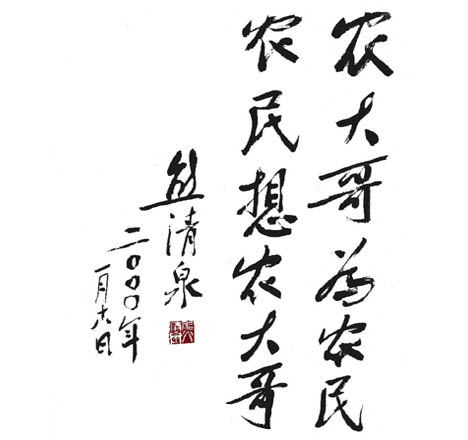 农大哥为农民
农民想农大哥
熊清泉
二〇〇〇年
一月日